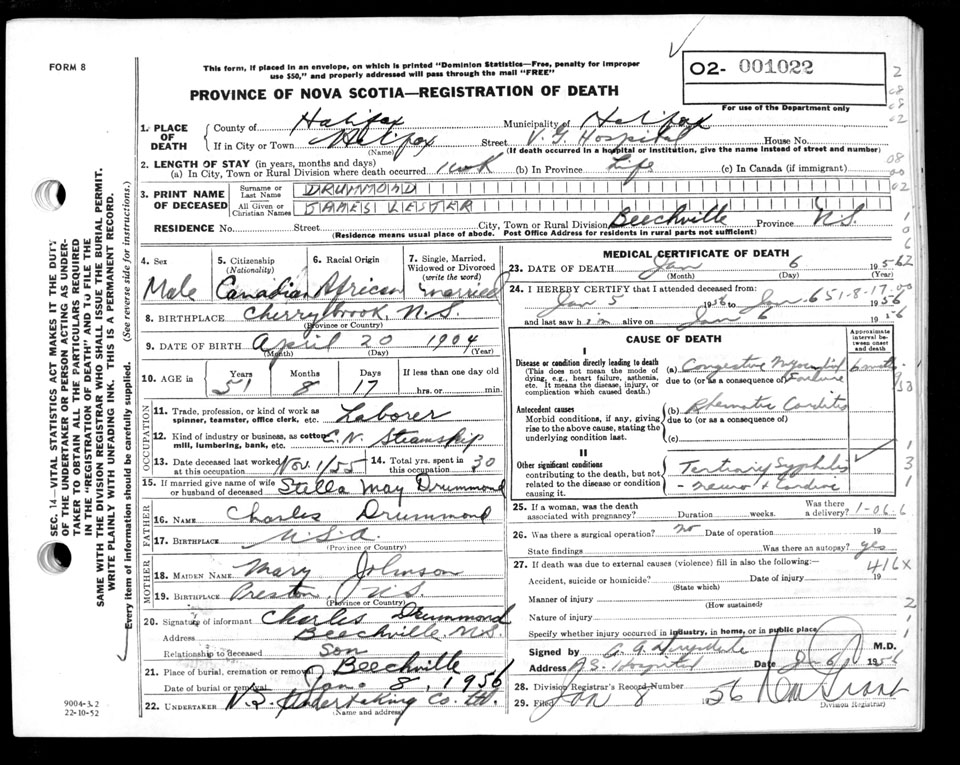 FORM 8
This form, if placed in an envelope, on which is printed "Dominion Statistics—Free, penalty for improper
use $50," and properly addressed will pass through the mail "FREE"
PROVINCE OF NOVA SCOTIA—REGISTRATION OF DEATH
02- 001022
For use of the Department only
1. PLACE OF DEATH
County of Halifax Municipality of Halifax
If in City or Town Halifax Street V. G. Hospital House No.
(Name) (If death occurred in a hospital or institution, give the name instead of street and number)
2. LENGTH OF STAY (in years, months and days)
(a) In City, Town or Rural Division where death occurred 1 wk (b) In Province Life (c) In Canada (if immigrant)
3. PRINT NAME OF DECEASED
Surname or Last Name DRUMMOND
All Given or Christian Names JAMES LESTER
RESIDENCE No. Street City, Town or Rural Division Beechville Province N.S.
(Residence means usual place of abode. Post Office Address for residents in rural parts not sufficient)
4. Sex
Male
5. Citizenship (Nationality)
Canadian
6. Racial Origin
African
7. Single, Married, Widowed or Divorced (write the word)
married
8. BIRTHPLACE Cherrybrook, N.S.
(Province or Country)
9. DATE OF BIRTH April 20 1904
(Month) (Day) (Year)
10. AGE in Years Months Days If less than one day old
51 8 17 hrs. or min.
OCCUPATION
11. Trade, profession, or kind of work as spinner, teamster, office clerk, etc. Laborer
12. Kind of industry or business, as cotton mill, lumbering, bank, etc. C.N. Steamship
13. Date deceased last worked at this occupation Nov. 1/55
14. Total yrs. spent in this occupation 30
15. If married give name of wife or husband of deceased Stella May Drummond
FATHER
16. NAME Charles Drummond
17. BIRTHPLACE
(Province or Country)
MOTHER
18. MAIDEN NAME Mary Johnson
19. BIRTHPLACE Preston, N.S.
(Province or Country)
20. Signature of informant Charles Drummond
Address Beechville, N.S.
Relationship to Deceased Son
21. Place of burial, cremation or removal Beechville
Date of burial or removal Jan. 8, 1956
22. UNDERTAKER N.S. Undertaking Co. Ltd.
(Name and address)
MEDICAL CERTIFICATE OF DEATH
23. DATE OF DEATH Jan 6 1956
(Month) (Day) (Year)
24. I HEREBY CERTIFY that I attended deceased from:
Jan 5 1956 to Jan. 6 1956
and last saw him alive on Jan 6 1956
CAUSE OF DEATH
Approximate interval between onset and death
I
Disease or condition directly leading to death
(This does not mean the mode of dying, e.g., heart failure, asthenia, etc. It means the disease, injury, or complication which caused death.)
(a) Congestive Myocardial Failure
due to (or as a consequence of)
Antecedent causes
Morbid conditions, if any, giving rise to the above cause, stating the underlying condition last.
(b) Rhematic Carditis
due to (or as a consequence of)
(c)
II
Other significant conditions
contributing to the death, but not related to the disease or condition causing it.
Tertiary Syphilis
- neuro + Cardiac
25. If a woman, was the death associated with pregnancy? Duration weeks. Was there a delivery?
26. Was there a surgical operation? no Date of operation 19
State findings Was there an autopsy? yes
27. If death was due to external causes (violence) fill in also the following:—
416x
Accident, suicide or homicide? Date of injury 19
(State which)
Manner of injury
(How sustained)
Nature of injury
Specify whether injury occurred in industry, in home, or in public place
Signed by M.D.
Address Hospital Date Jan 6 1956
28. Division Registrar's Record Number
29. Filed Jan 8 1956
Division Registrar)
SEC. 14—VITAL STATISTICS ACT MAKES IT THE DUTY
OF THE UNDERTAKER OR PERSON ACTING AS UNDER-
TAKER TO OBTAIN ALL THE PARTICULARS REQUIRED
IN THE "REGISTRATION OF DEATH" AND TO FILE THE
SAME WITH THE DIVISION REGISTRAR WHO SHALL ISSUE THE BURIAL PERMIT.
WRITE PLAINLY WITH UNFADING INK. THIS IS A PERMANENT RECORD.
Every item of information should be carefully supplied. (See reverse side for instructions.)
9004-3.2
22-10-52